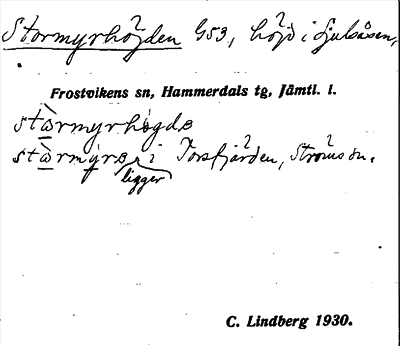 Stormyrhöjden G53, höjd i Gjulsåsen,
Frostvikens sn, Hammerdals tg, Jämtl. l.
stɷ̀rmyrhøgdɞ
stɷ̀rmýrɞ i Torsfjärden, Ströms sn.
ligger
C. Lindberg 1930.